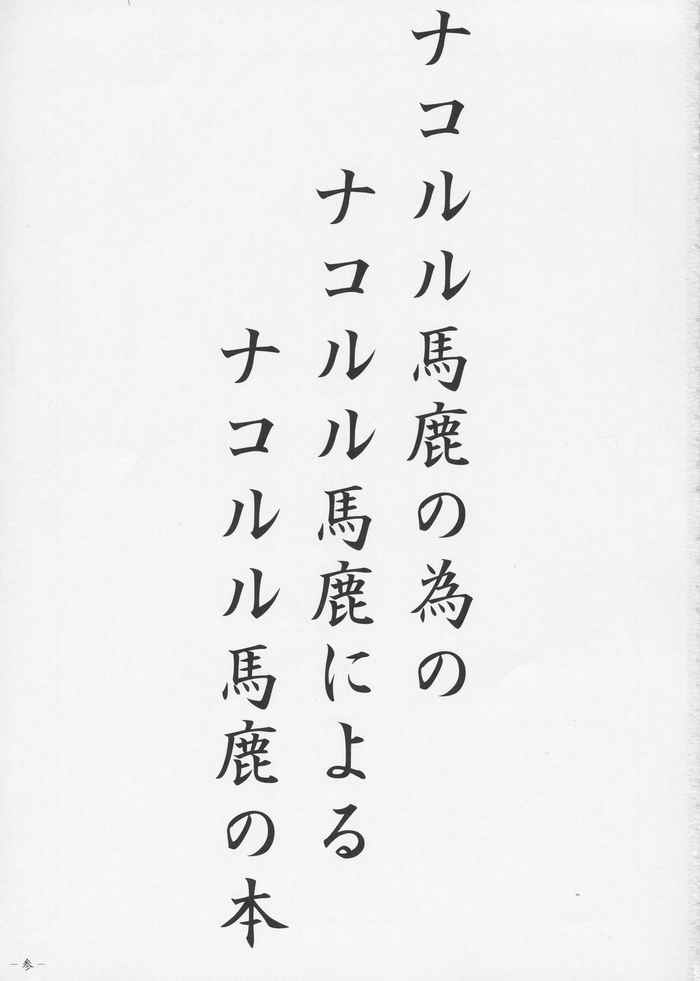 ナコルル馬鹿の為の
ナコルル馬鹿による
ナコルル馬鹿の本
－参－